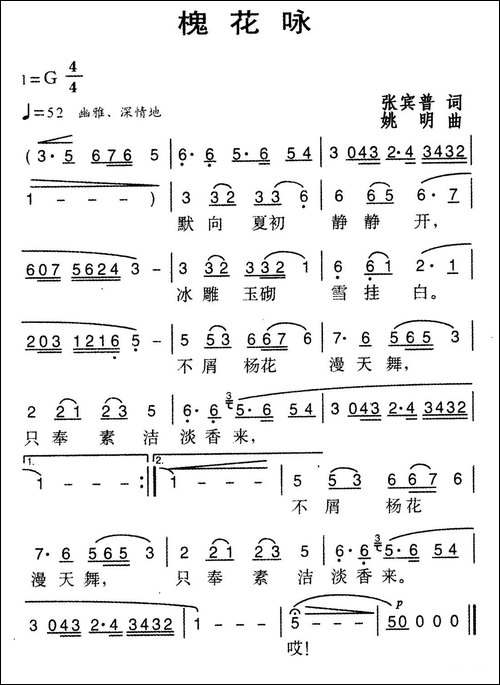 槐花咏
1=G 4/4
♩=52 幽雅、深情地
张宾普 词
姚明 曲
(3·5 676 5 | 6·6 5·6 54 | 3 043 2·4 3432 |
1 - - - ) | 3 32 23 6 | 5 65 6·7 |
默向夏初 静静开,
607 5624 3 - | 3 332 332 1 | 6 61 2·1 |
冰雕玉砌 雪挂白。
203 1216 5 - | 5 53 667 6 | 7·6 565 3 |
不屑杨花 漫天舞,
2 21 23 5 | 6·6 5·6 54 | 3 043 2·4 3432 |
只奉素洁 淡香来,
1. 1 - - - :| 2. 1 - - - | 5 53 667 6 |
不屑杨花
7·6 565 3 | 2 21 23 5 | 6·6 5·6 54 |
漫天舞, 只奉素洁 淡香来。
3 043 2·4 3432 | 1 - - - | 5 - - - | p 50 0 0 0 ‖
哎!